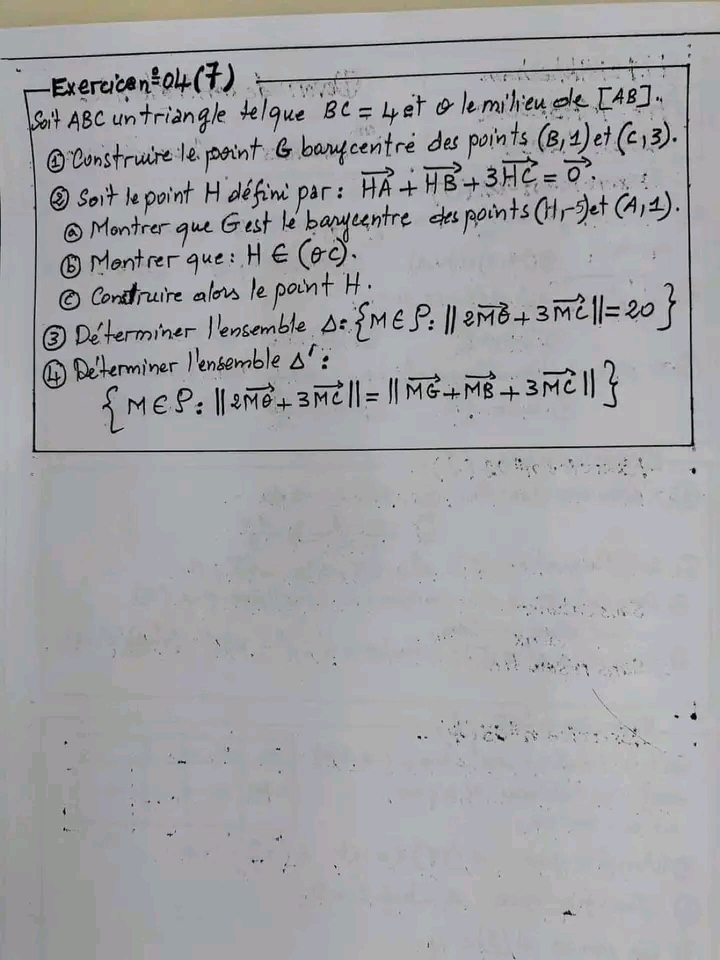 Exercice n°04 (7)
Soit ABC un triangle tel que BC = 4 et O le milieu de [AB].
① Construire le point G barycentre des points (B,1) et (C,3).
② Soit le point H défini par : HA + HB + 3HC = 0.
ⓐ Montrer que G est le barycentre des points (H,-5) et (A,1).
ⓑ Montrer que : H ∈ (OC).
ⓒ Construire alors le point H.
③ Déterminer l'ensemble Δ : {M ∈ P : || 2MO + 3MC || = 20}
④ Déterminer l'ensemble Δ' :
{M ∈ P : || 2MO + 3MC || = || MG + MB + 3MC ||}